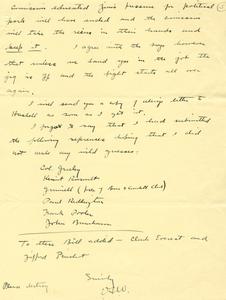 Commission educated Zenis passion for political
pork will have ended and the Commission
will take the reins in their hands and
keep it. I agree with the boys however
that unless we hand you in the job the
jig is up and the fight starts all over
again.
I will send you a copy of letter to
Haskell as soon as I get it.
I forgot to say that I had submitted
the following references hoping that I did
not make any wild guesses.
Col. Greeley
Kermit Roosevelt
Grinnell (pres of Boone & Crockett Club)
Paul Redington
Frank Poole
John Burnham
To these Bill added — Clark Everest and
Gifford Pinchot
Sincerely
Please destroy